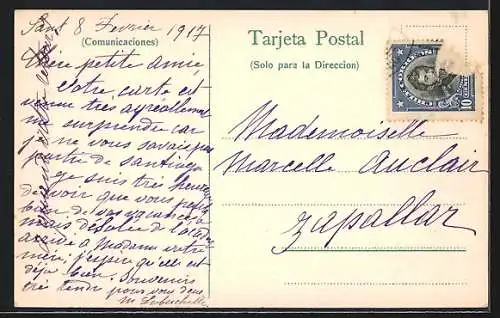 Sant 8 Fevrier 1917
(Comunicaciones)
Chère petite amie,
Votre carte est
venue très agréablement
me surprendre car
je ne vous savais pas
partie de Santiago
Je suis très heureuse
de voir que vous profitez
bien de vos vacances
mais désolée de
arrivé à Madame votre
mère, j'espère qu'elle est
déjà bien. Souvenirs
très tendre pour vous deux
Tarjeta Postal
(Solo para la Direccion)
Mademoiselle
Marcelle Auclair
Zapallar
CHILE
10